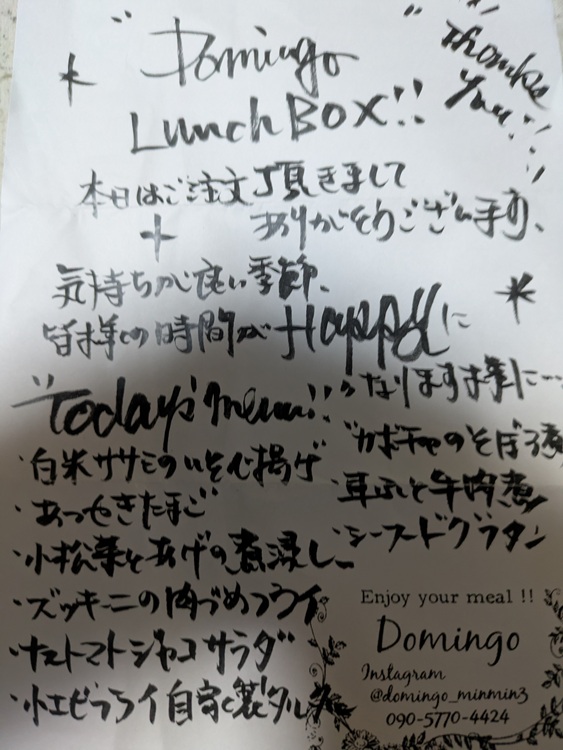 "Domingo
LunchBox!!
"Thanks
You!!"
本日はご注文頂きまして
ありがとうございます、
気持ちが良い季節、
皆様の時間がHappyに
なりますよう様に…
"Today's menu!!"
・白米ササミのいそべ揚げ
・あつやきたまご
・小松菜とあげの煮浸し
・ズッキーニの肉づめフライ
・ナストマトジャコサラダ
・小エビフライ自家製タルタル
・カボチャのそぼろ煮
・車ふと牛肉煮
・シーフードグラタン
Enjoy your meal !!
Domingo
Instagram
@domingo_minmin3
090-5770-4424